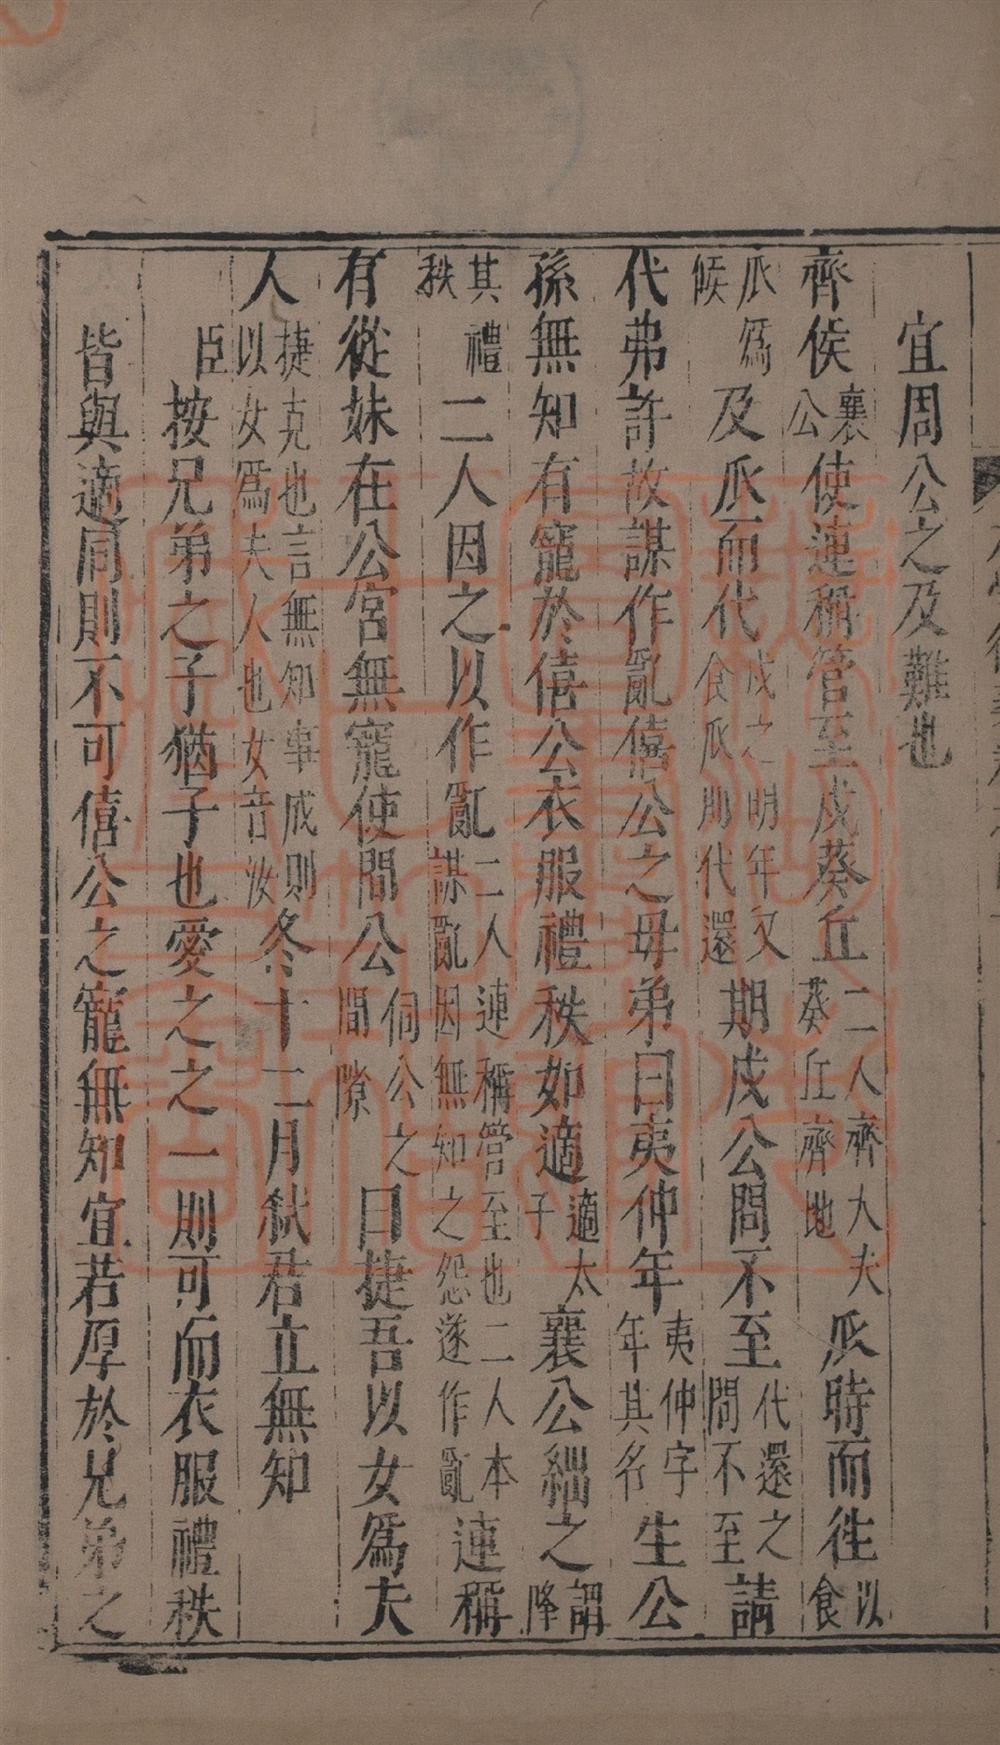 宜周公之及難也
齊侯襄公使連稱管至戍葵丘二人齊大夫葵丘齊地瓜時而徃以食
瓜爲候及瓜而代戍之明年又食瓜則代還期戍公問不至代還之問不至請
代弗許故謀作亂僖公之母弟曰夷仲年夷仲字年其名生公
孫無知有寵於僖公衣服禮秩如適適太子襄公絀之謂降
其禮秩二人因之以作亂二人連稱管至也二人本謀亂因無知之怨遂作亂連稱
有從妹在公宮無寵使間公伺公之間隙曰捷吾以女爲夫
人捷克也言無知事成則以女爲夫人也女音汝冬十二月弑君立無知
臣按兄弟之子猶子也愛之之一則可而衣服禮秩
皆與適同則不可僖公之寵無知宜若厚於兄弟之